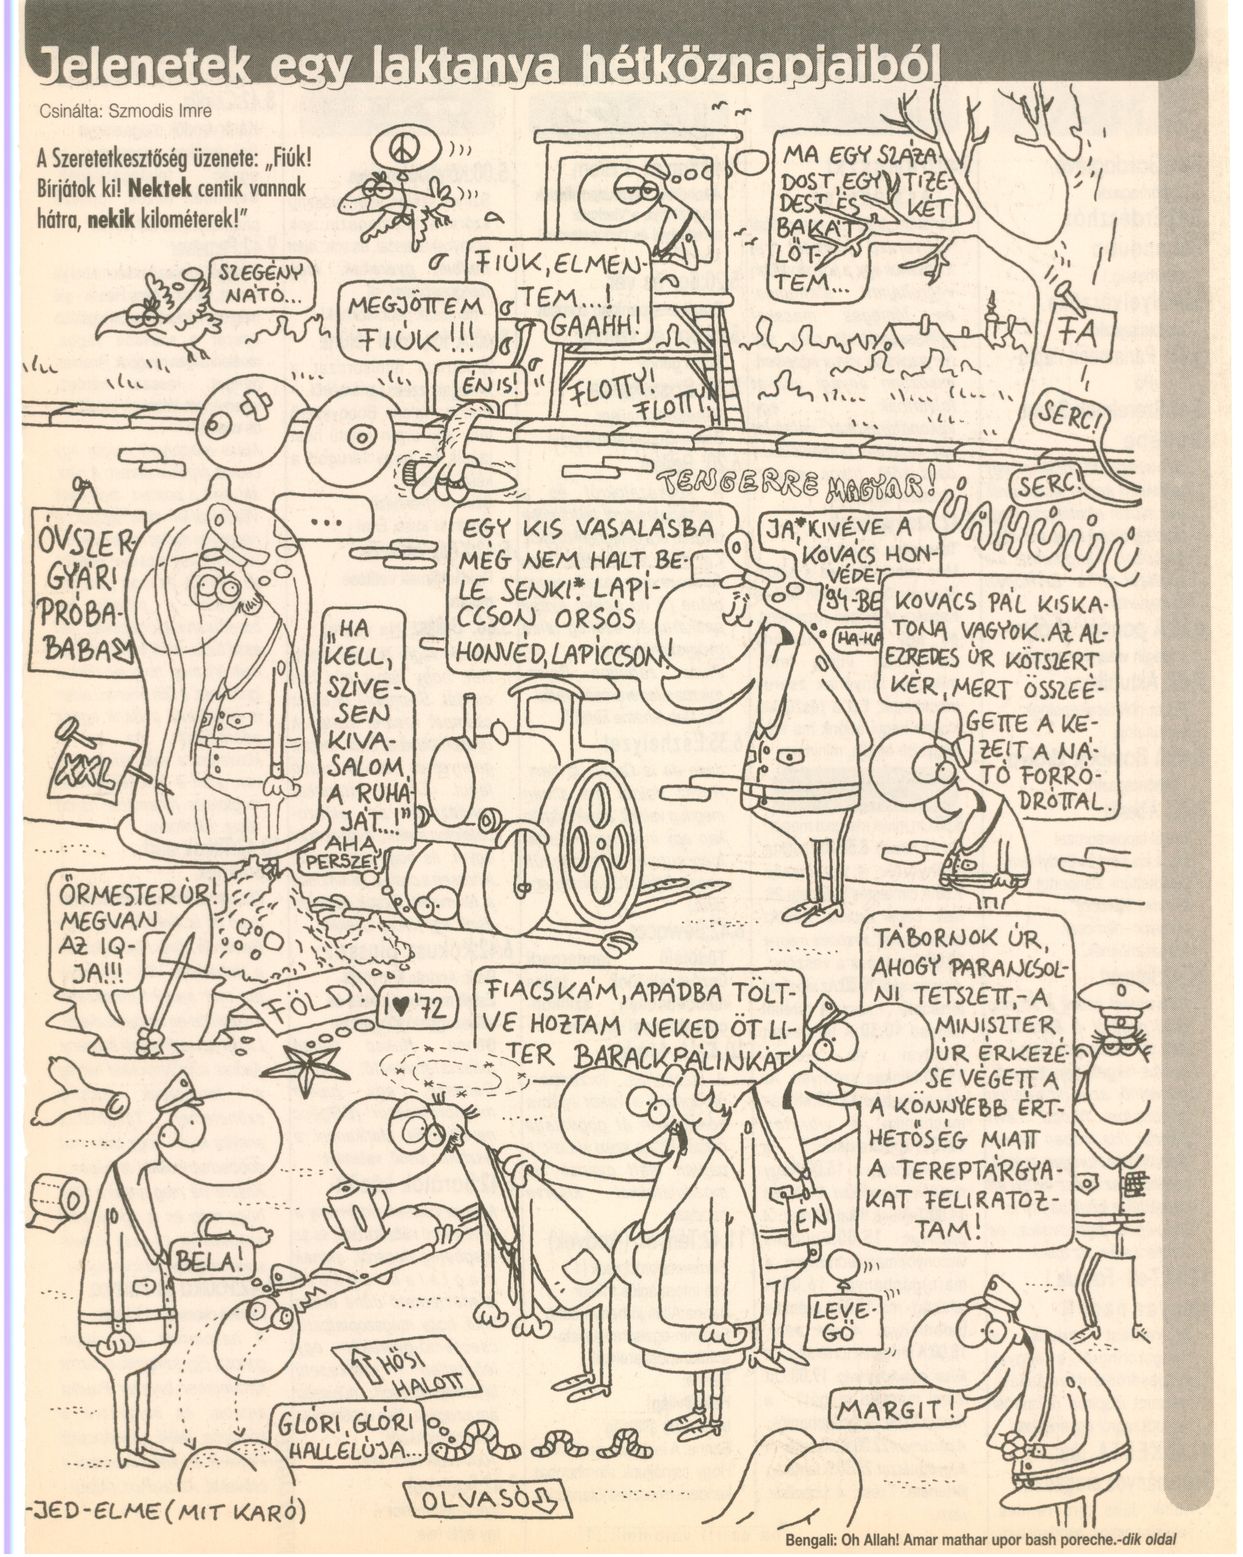 Jelenetek egy laktanya hétköznapjaiból
Csinálta: Szmodis Imre
A Szeretetkesztőség üzenete: „Fiúk!
Bírjátok ki! Nektek centik vannak
hátra, nekik kilométerek!”
SZEGÉNY
NATÓ...
MEGJÖTTEM
FIÚK!!!
FIÚK, ELMEN-
TEM...!
GAAHH!
ÉN IS!
FLOTTY!
FLOTTY!
MA EGY SZÁZA-
DOST, EGY TIZE-
DEST ÉS KÉT
BAKÁT
LŐT-
TEM...
FA
SERC!
SERC!
TENGERRE MAGYAR!
ÚAHÚÚÚ
ÓVSZER-
GYÁRI
PRÓBA-
BABA
...
XXL
„HA
KELL,
SZÍVE-
SEN
KIVA-
SALOM,
A RUHÁ-
JÁT...!”
AHA,
PERSZE!
EGY KIS VASALÁSBA
MÉG NEM HALT BE-
LE SENKI* LAPÍ-
CCSON ORSÓS
HONVÉD, LAPÍCCSON.
JA,* KIVÉVE A
KOVÁCS HON-
VÉDET
'94-BE
HA-HA
KOVÁCS PÁL KISKA-
TONA VAGYOK. AZ AL-
EZREDES ÚR KÖTSZERT
KÉR, MERT ÖSSZEÉ-
GETTE A KE-
ZEIT A NA-
TÓ FORRÓ-
DRÓTTAL.
ŐRMESTER ÚR!
MEGVAN
AZ IQ-
JA!!!
FÖLD!
I ♥ '72
FIACSKÁM, APÁDBA TÖLT-
VE HOZTAM NEKED ÖT LI-
TER BARACKPÁLINKÁT!
TÁBORNOK ÚR,
AHOGY PARANCSOL-
NI TETSZETT,-A
MINISZTER
ÚR ÉRKEZÉ-
SE VÉGETT A
A KÖNNYEBB ÉRT-
HETŐSÉG MIATT
A TEREPTÁRGYA-
KAT FELIRATOZ-
TAM!
ÉN
BÉLA!
LEVE-
GŐ
HŐSI
HALOTT
MARGIT!
GLÓRI, GLÓRI
HALLELÚJA...
OLVASÓ
-JED-ELME (MIT KARÓ)
Bengali: Oh Allah! Amar mathar upor bash poreche.-dik oldal